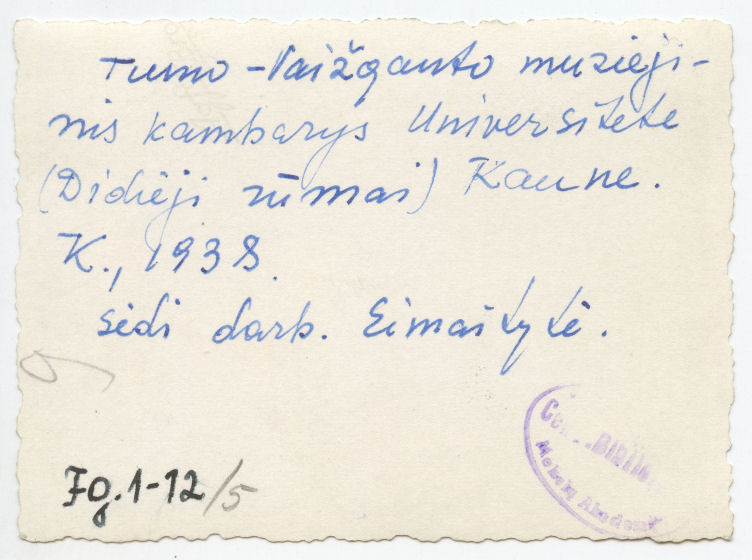 Tumo-Vaižganto muzieji-
nis kambarys Universitete
(Didieji rūmai) Kaune.
K., 1938.
Sėdi darb. Eimaitytė.
Fg.1-12/5
Mokslų